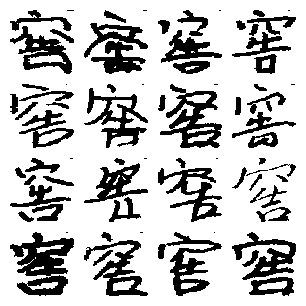 窖窖窖窖
窖窖窖窖
窖窖窖窖
窖窖窖窖